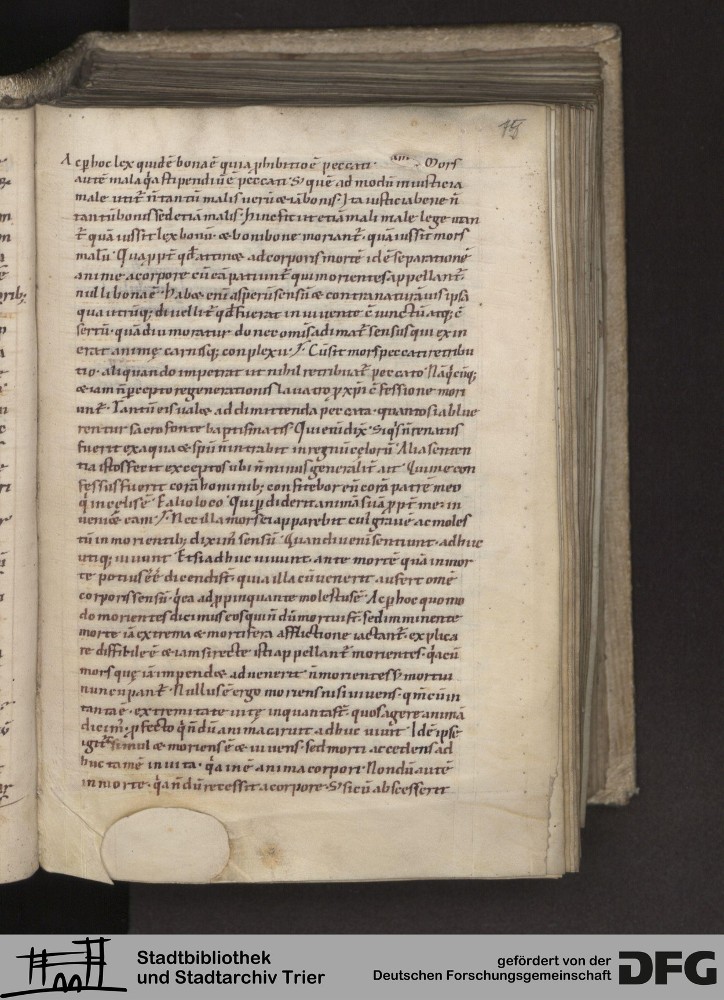 75
Ac p hoc lex quidē bona ē quia phibitio ē peccati · Mors
autē mala q̇a stipendiū ē peccati · S; quē ad modū iniusticia
male utit̄ n̄ tantū malis uerū & iā bonis · Ita iusticia bene n̄
tantū bonis sed etiam malis · Hinc fit ut etiā mali male lege utan
t̄ quā uis sit lex bonū · & boni bene moriant̄ · quā uis sit mors
malū · Qua ppt̄ qđ attin& ad corporis mortē id ē separationē
anime a corpore cū eā patiunt̄ qui morientes appellant̄
nulli bona ē · Hab& eni asperū sensū & contra naturā uis ipsa
qua utrūq; diuellit̄ qđ fuerat in uiuente c̄iunctū atq; c̄
sertū · quā diu moratur donec omīs adimat̄ sensus qui ex in
erat animę carnisq; conplexu · Cū sit mors peccati retribu
tio · aliquando impetrat ut nihil retribuat̄ peccato Nā q̇cūq;
& iam n̄ percepto regenerationis lauacro p xp̄i c̄fessione mori
unt̄ · Tantū eis ual& ad dimittenda peccata · quanto si ablue
rentur sacro fonte baptismatis · Qui eni dix̄ · Siq̇s n̄ renatus
fuerit ex aqua & spū n̄ intrabit in regnū cęlorū Alia senten
tia istos fecit exceptos ubi n̄ minus generalit̄ ait · Qui me con
fessus fuerit corā hominib; confitebor eū corā patre meo
q̇ in cęlis ē · E alio loco · Qui pdiderit animā suā ppt̄ me · in
ueni& eam · Nec illa mors ei apparebit cui graue ac moles
tū in morientib; diximˀ sensū · Quandiu eni sentiunt · adhuc
utiq; uiuunt · Et si adhuc uiuunt · ante mortē quā in mor
te potius ēē dicendi s̄t · quia illa cū uenerit aufert omē
corporis sensū · q̇ ea adppinquante molestus ē · Ac p hoc quomo
do morientes dicimus eos qui n̄dū mortui s̄t · sed imminente
morte iā extrema & mortifera afflictione iactant̄ · explica
re difficile ē · & iam si recte isti appellant̄ morientes · q̇a cū
mors quę iā impend& aduenerit n̄ morientes s; mortui
nuncupant̄ · Nullus ē ergo moriens nisi uiuens · qm̄ cū in
tanta ē · extremitate uitę in quanta s̄t · quos agere animā
dicimˀ · pfecto q̇ n̄dū anima caruit adhuc uiuit Idē ipse
igit̄ simul & moriens ē & uiuens · sed morti accedens ad
huc tamē in uita · q̇a inē anima corpori · Nondū autē
in morte · q̇a n̄dū recessit a corpore · S; si cū abscesserit
Stadtbibliothek
und Stadtarchiv Trier
gefördert von der
Deutschen Forschungsgemeinschaft
DFG